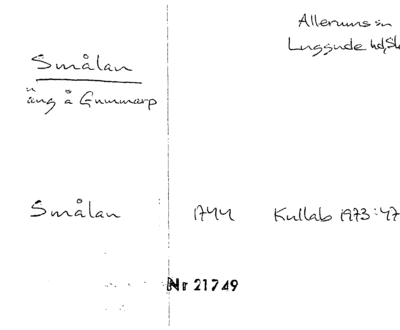 Allerums sn
Luggude hd, Sk
Smålan
äng å Gunnarp
Smålan 1744 Kullab 1973:47
Nr 21749